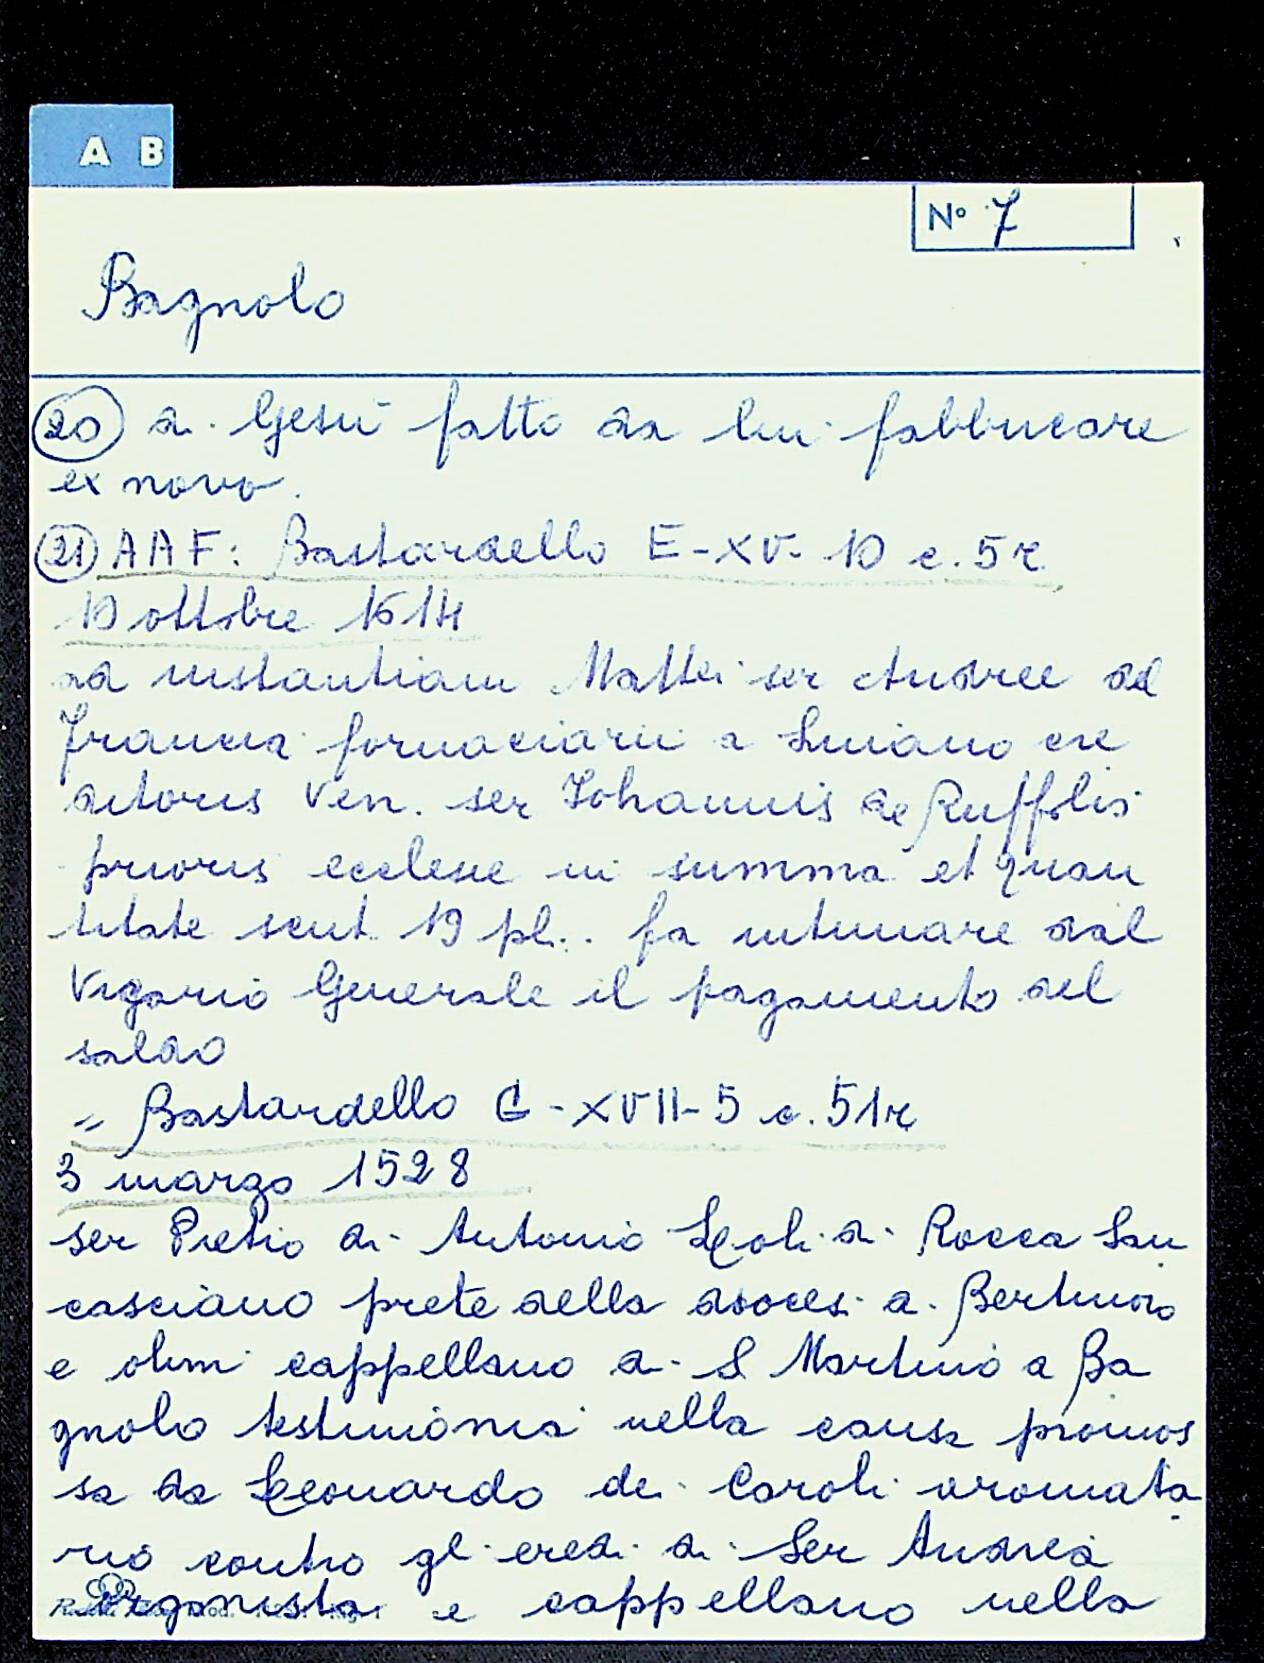 A B
Nº 7
Bagnolo
20 di Gesù fatto da lui fabbricare
ex novo.
21 AAF: Bastardello E-XV-10 c. 5r
10 ottobre 1514
ad instantiam Mattei ser Andree del
Francia fornaciarii a Luiano cre
ditoris Ven. ser Iohannis de Ruffolis
prioris ecclesie in summa et quan
titate scut. 19 pl.. fa intimare dal
Vigario Generale il pagamento del
saldo
" Bastardello G-XVII-5 c. 51r
3 marzo 1528
ser Pietro di Antonio Leoli di Rocca San
casciano prete della diocesi di Bertinoro
e olim cappellano di S Martino a Ba
gnolo testimonia nella causa promos
sa da Leonardo dei Caroli aromata
rio contro gl eredi di Ser Andrea
Organista e cappellano nella